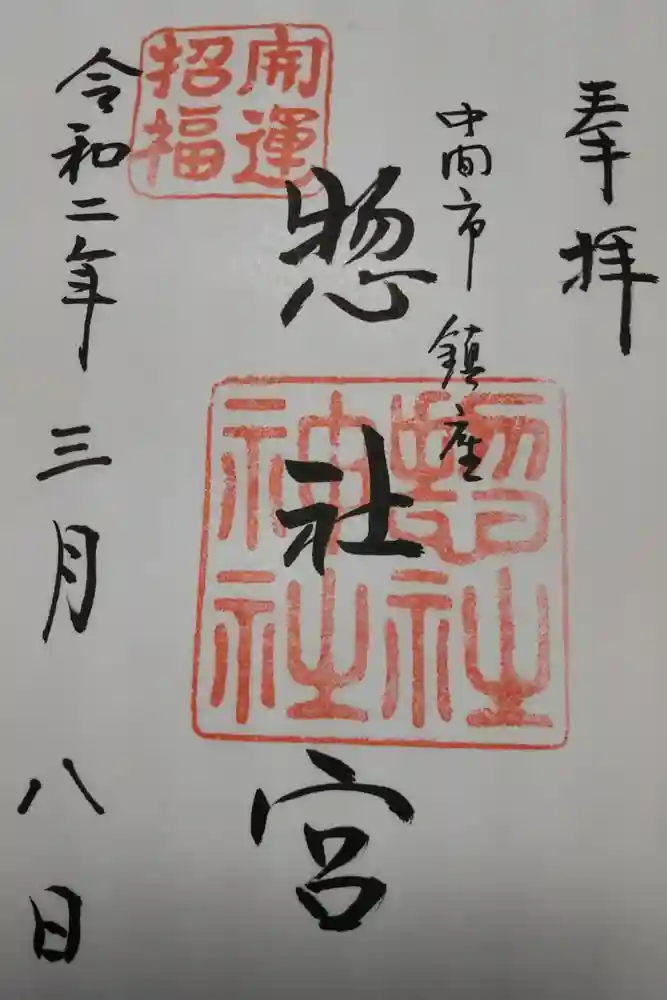 奉拝
中間市鎮座
惣社宮
惣社
神社
開運
招福
令和二年三月八日